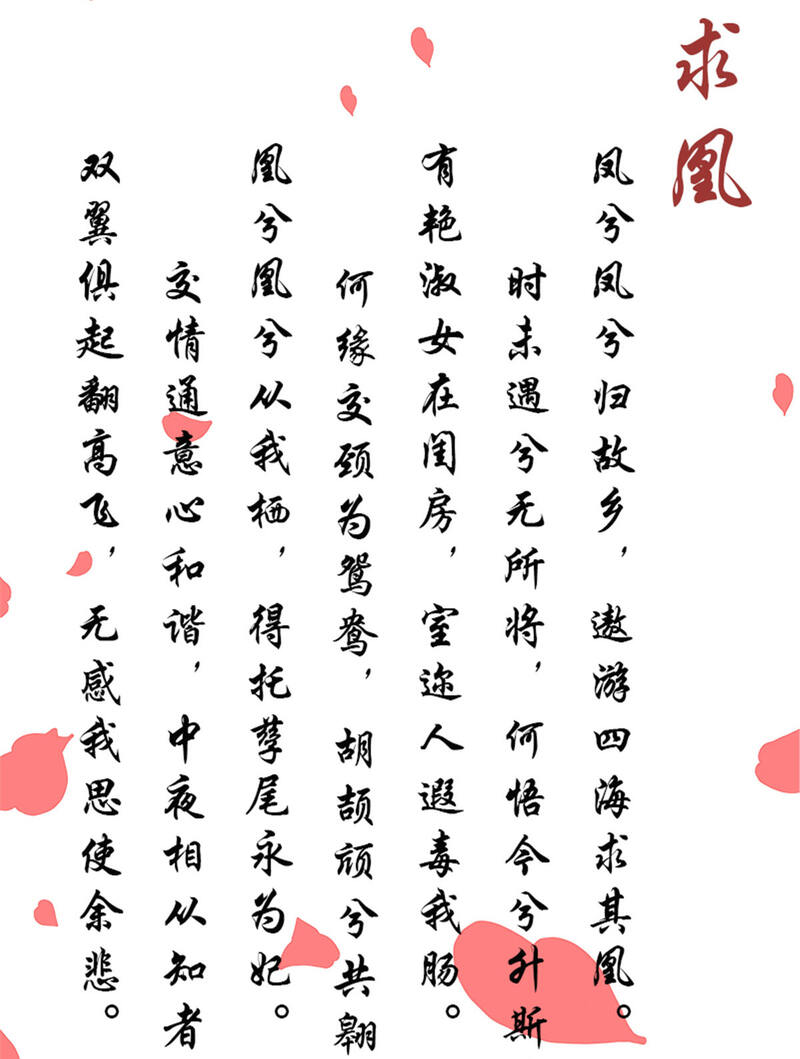 求凰
凤兮凤兮归故乡，遨游四海求其凰。
时未遇兮无所将，何悟今兮升斯
有艳淑女在闺房，室迩人遐毒我肠。
何缘交颈为鸳鸯，胡颉颃兮共翱
凰兮凰兮从我栖，得托孳尾永为妃。
交情通意心和谐，中夜相从知者
双翼俱起翻高飞，无感我思使余悲。